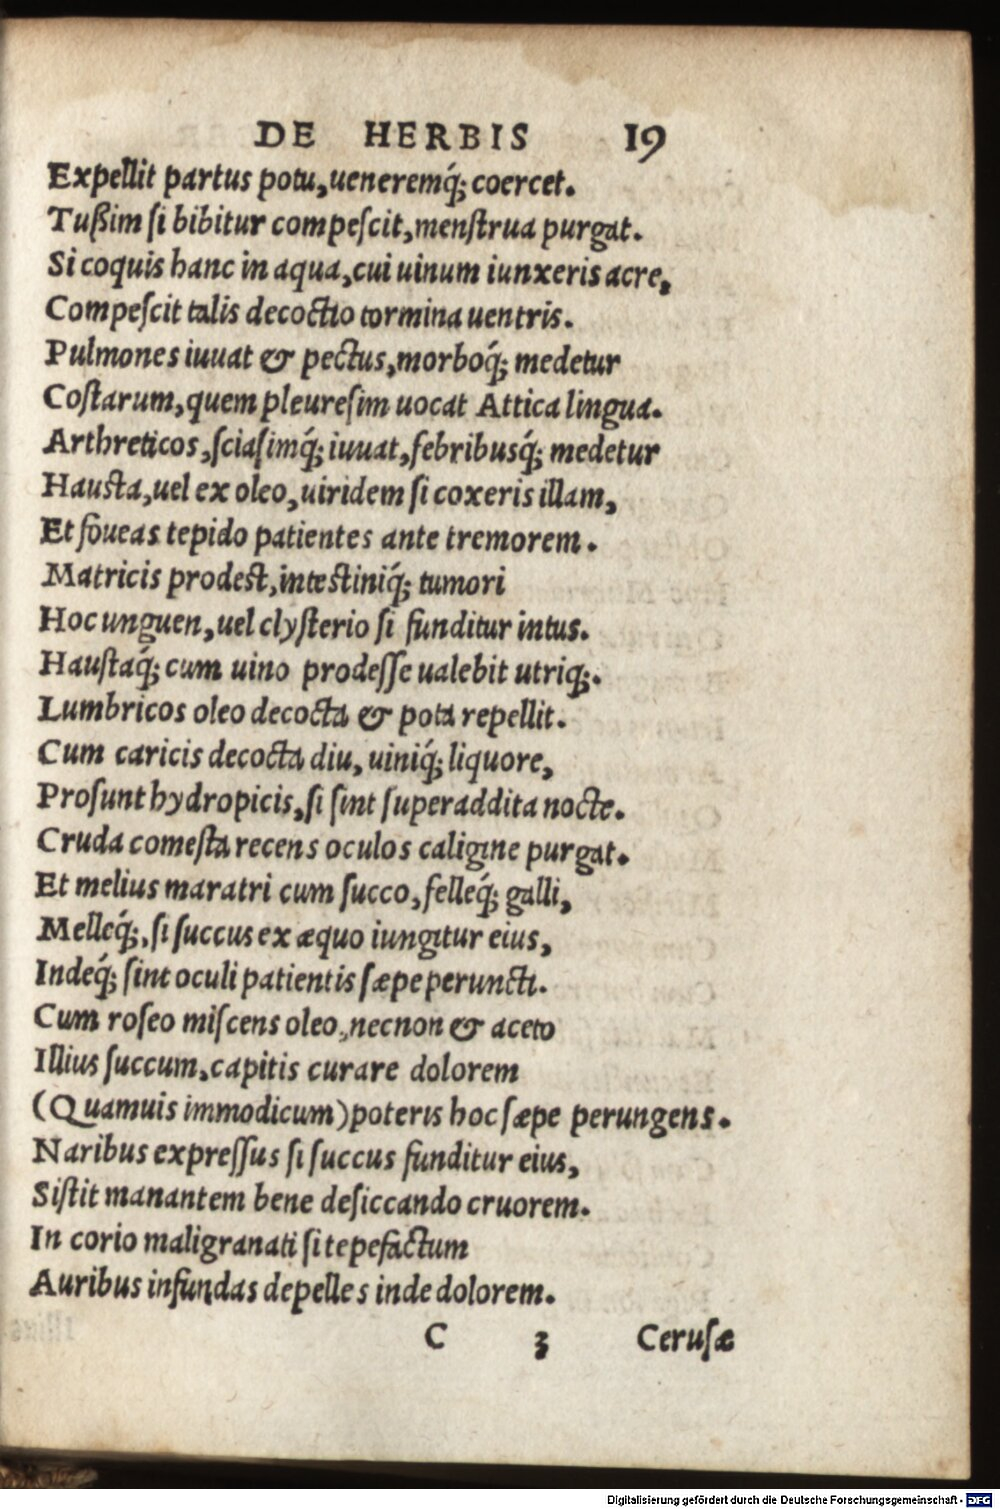 DE HERBIS 19
Expellit partus potu, ueneremq́; coercet.
Tußim si bibitur compeſcit, menſtrua purgat.
Si coquis hanc in aqua, cui uinum iunxeris acre,
Compeſcit talis decoctio tormina uentris.
Pulmones iuuat & pectus, morboq́; medetur
Coſtarum, quem pleureſim uocat Attica lingua.
Arthreticos, ſciaſimq́; iuuat, febribusq́; medetur
Hausta, uel ex oleo, uiridem ſi coxeris illam,
Et foueas tepido patientes ante tremorem.
Matricis prodest, intestiniq́; tumori
Hoc unguen, uel clyſterio ſi funditur intus.
Hauſtaq́; cum uino prodeſſe ualebit utriq;.
Lumbricos oleo decocta & pota repellit.
Cum caricis decocta diu, uiniq́; liquore,
Proſunt hydropicis, ſi ſint ſuperaddita nocte.
Cruda comeſta recens oculos caligine purgat.
Et melius maratri cum ſucco, felleq́; galli,
Melleq́;, ſi ſuccus ex æquo iungitur eius,
Indeq́; ſint oculi patientis ſæpe peruncti.
Cum roſeo miſcens oleo, necnon & aceto
Illius ſuccum, capitis curare dolorem
(Quamuis immodicum) poteris hoc ſæpe perungens.
Naribus expreſſus ſi ſuccus funditur eius,
Siſtit manantem bene deſiccando cruorem.
In corio maligranati ſi tepefactum
Auribus infundas depelles inde dolorem.
C 3 Ceruſæ
Digitalisierung gefördert durch die Deutsche Forschungsgemeinschaft - DFG